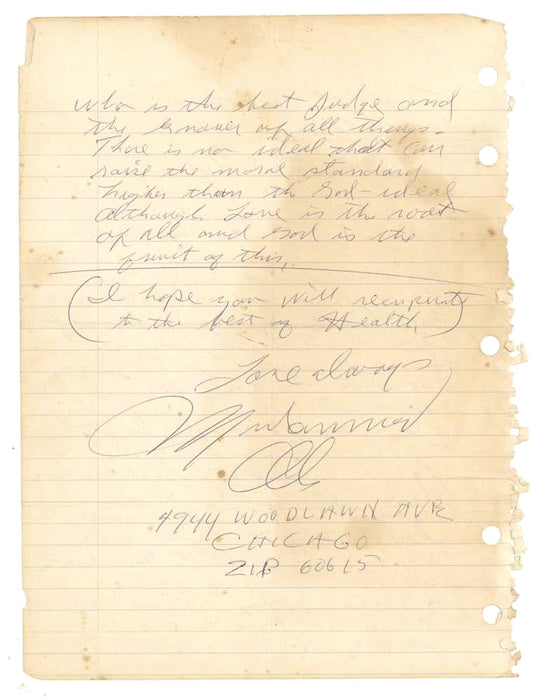 who is the best Judge and
the knower of all things.
There is no ideal that can
raise the moral standard
higher than th God-ideal
although Love is the root
of all and God is the
fruit of this,
(I hope you will recuperate
to the best of Health)
Love always
Muhammad
Ali
4944 WOODLAWN AVE
CHICAGO
ZIP 60615